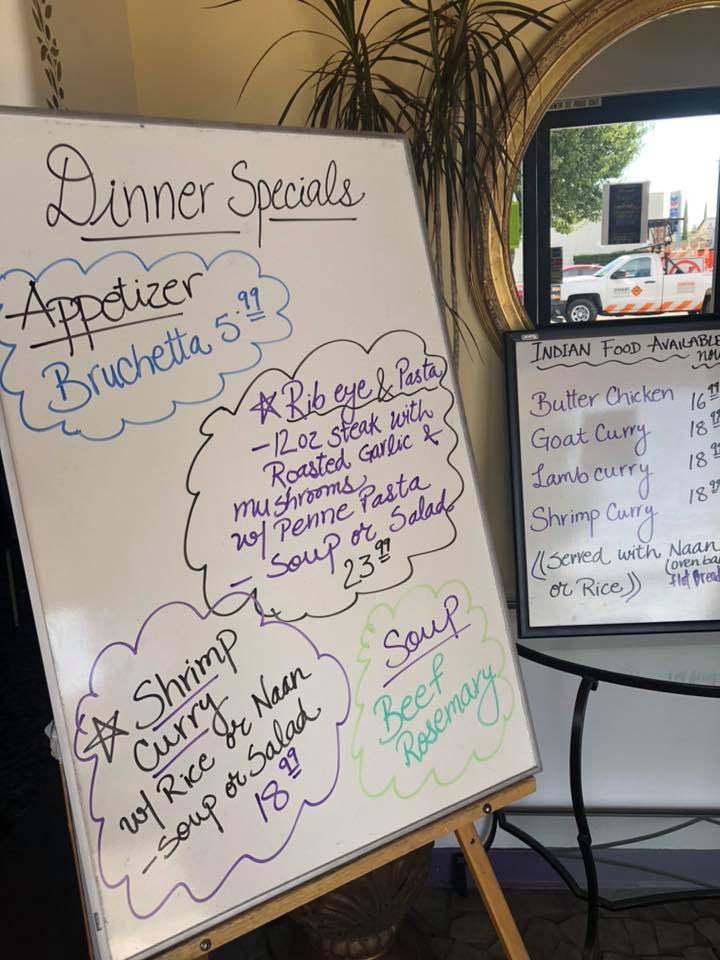 Dinner Specials
Appetizer
Bruchetta 5.99
☆ Rib eye & Pasta
- 12oz steak with
Roasted Garlic &
mushrooms
w/ Penne Pasta
- Soup or Salad
23 99
☆ Shrimp
Curry
w/ Rice or Naan
- Soup or Salad
18 99
Soup
Beef
Rosemary
INDIAN FOOD AVAILABLE
now
Butter Chicken 16 99
Goat Curry 18 99
Lamb curry 18 99
Shrimp Curry 18 99
((Served with Naan
or Rice))
flat Bread